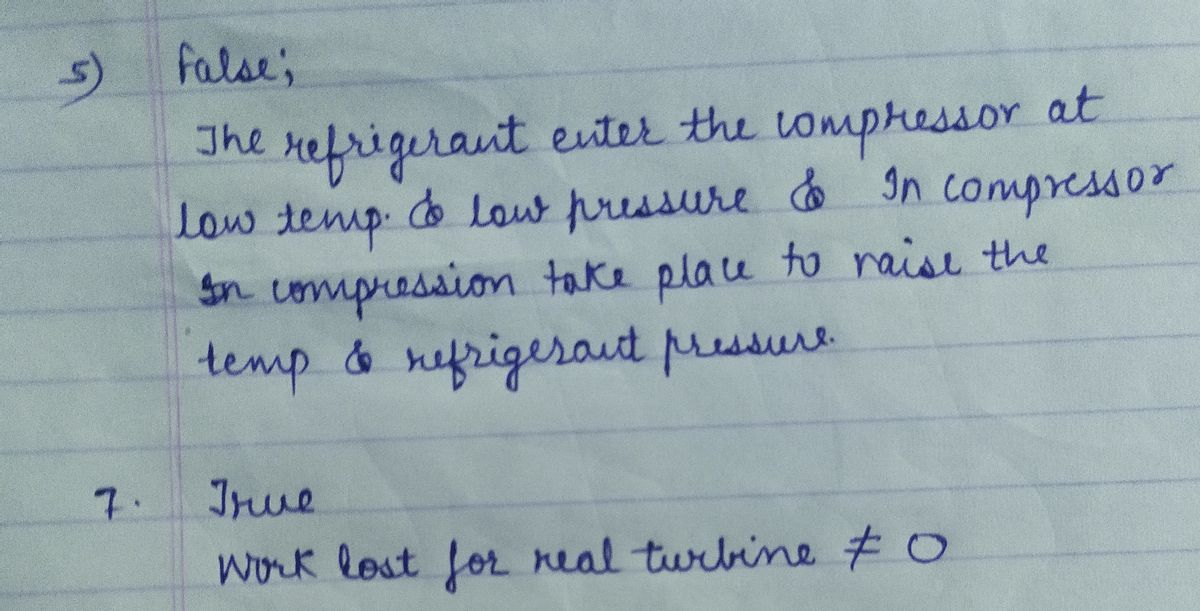 5) False;
The refrigerant enter the compressor at
low temp. & low pressure & In compressor
In compression take place to raise the
temp & refrigerant pressure.
7. True
Work lost for real turbine ≠ 0